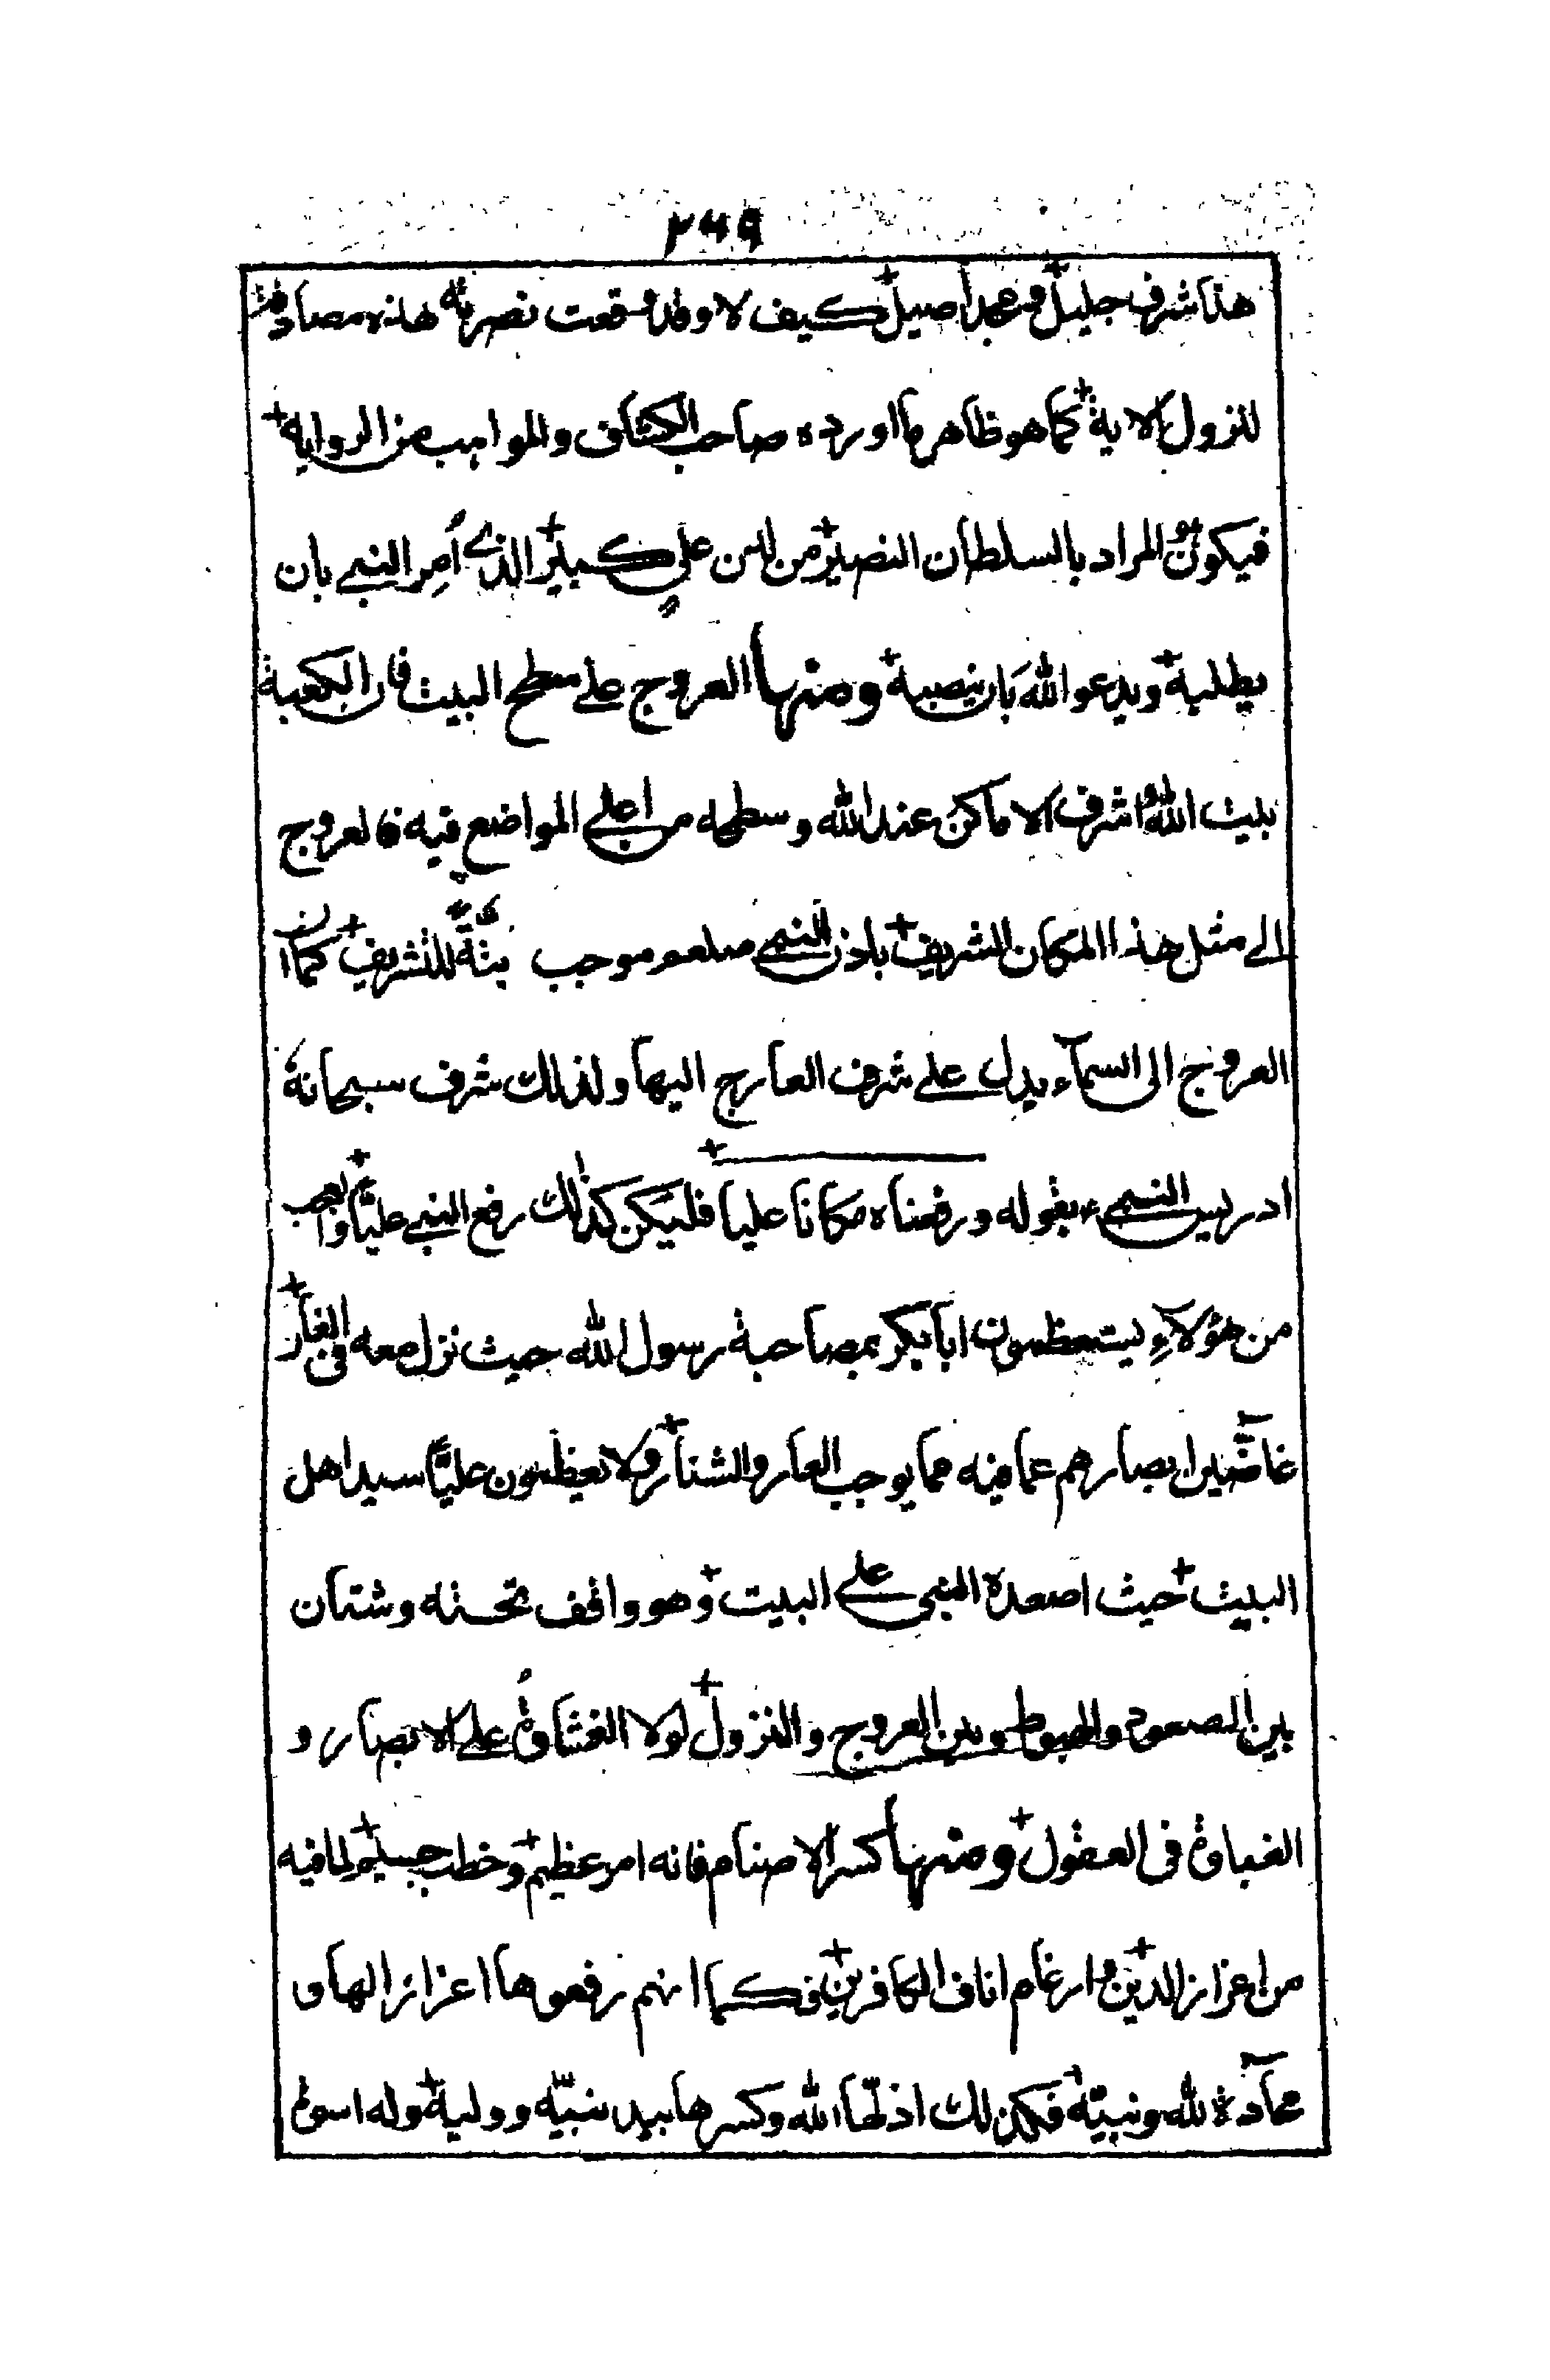 ٢٦٩
هذا شرف جليل ومجد اصيل كيف لا وقد وقعت نصرته هذه مصادفة
لنزول الاية كما هو ظاهر ما اورده صاحب الكشاف والمواهب من الرواية
فيكون المراد بالسلطان النصير من لدن علي كبير الذي أمر النبي بان
يطلبه ويدعو الله بان ينصبه ومنها العروج على سطح البيت فان الكعبة
بيت الله اشرف الاماكن عند الله وسطحه من اعلى المواضع فيه فالعروج
الى مثل هذا المكان الشريف باذن النبي صلعم موجب للتشريف كما ان
العروج الى السمآء يدل على شرف العارج اليها ولذلك شرف سبحانه
ادريس النبي ء بقوله ورفعناه مكانا عليا فليكن كذلك رفع النبي عليّا والعجب
من هؤلآءِ يستعظمون ابا بكر بمصاحبة رسول الله حيث نزل معه في الغار
غاضّين ابصارهم عما فيه مما يوجب العار والشنار ولا يعظمون عليّاً سيد اهل
البيت حيث اصعده النبي على البيت وهو واقف تحته وشتان
بين الصعود والهبوط وبين العروج والنزول لولا الغشاوة على الابصار و
الغباوة في العقول ومنها كسر الاصنام فانه امر عظيم وخطب جسيم لما فيه
من اعزاز الدين وارغام اناف الكافرين فكما انهم رفعوها اعزازا لها و
محآدة لله ونبيّه فكذلك اذلّها الله وكسرها بيد نبيّه ووليه وله اسوة